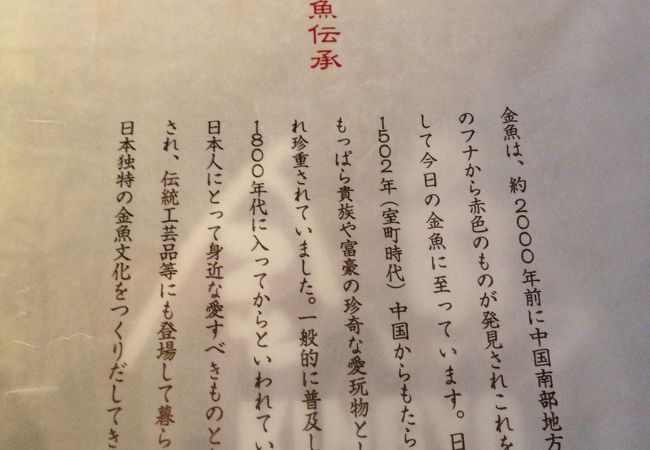 魚伝承
金魚は、約2000年前に中国南部地方
のフナから赤色のものが発見されこれを
して今日の金魚に至っています。日
1502年（室町時代）中国からもたら
もっぱら貴族や富豪の珍奇な愛玩物とし
れ珍重されていました。一般的に普及し
1800年代に入ってからといわれてい
日本人にとって身近な愛すべきものと
され、伝統工芸品等にも登場して暮ら
日本独特の金魚文化をつくりだしてき